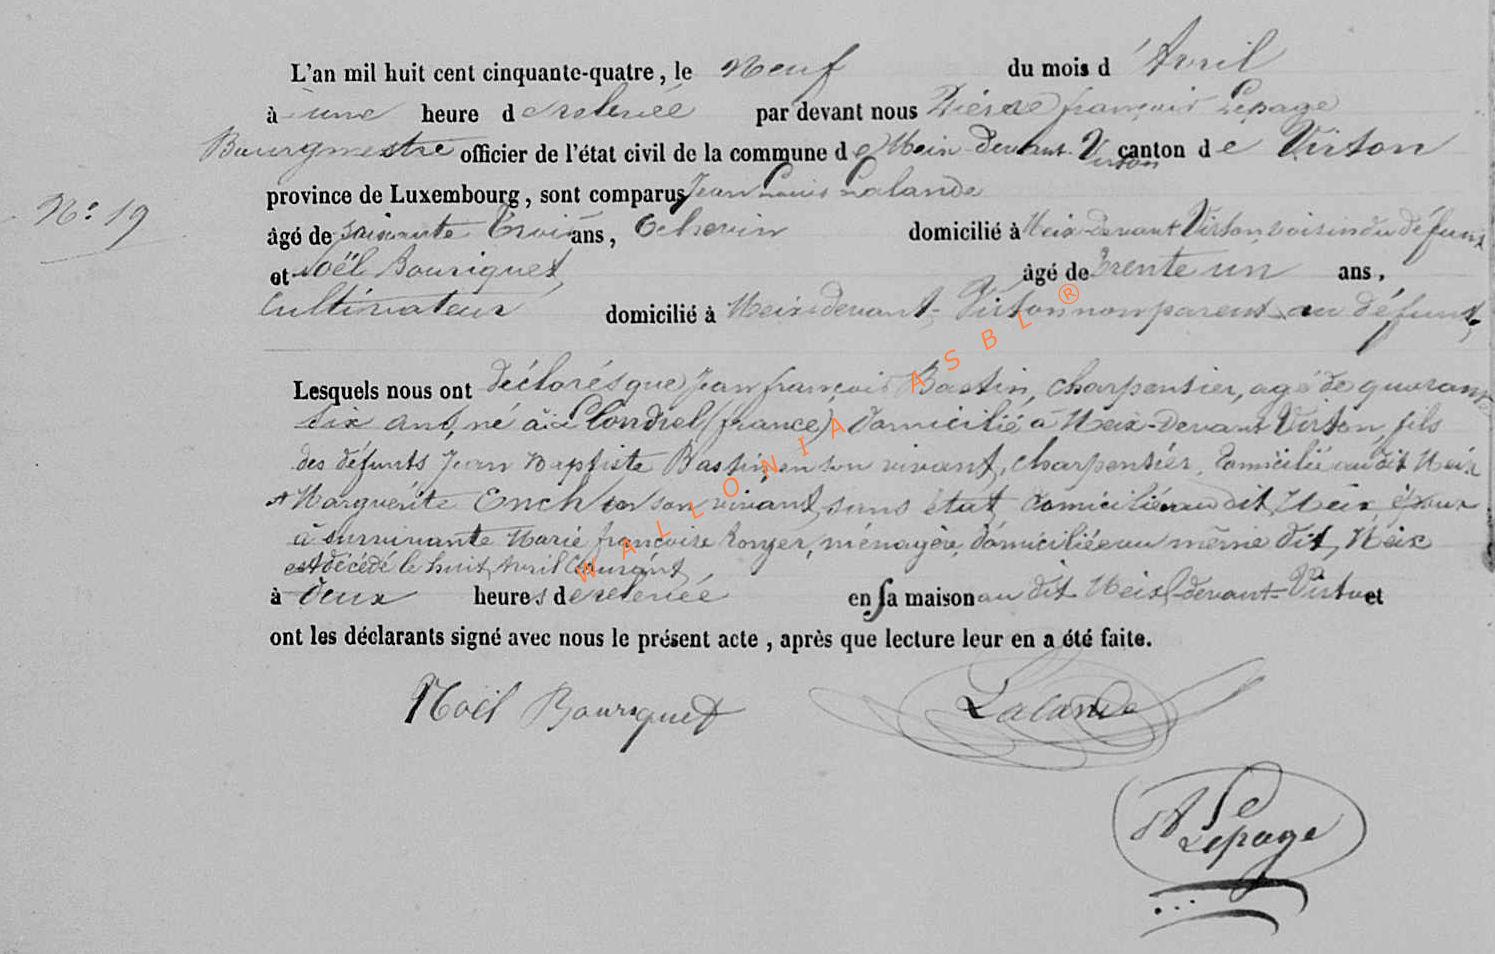 L'an mil huit cent cinquante-quatre, le neuf du mois d'Avril
à une heure de relevée par devant nous Pierre françois Lepage
Bourgmestre officier de l'état civil de la commune de Meix-devant-Virton canton de Virton
province de Luxembourg, sont comparus Jean Louis Lalande
N° 19
âgé de soixante Trois ans, Echevin domicilié à Meix-Devant Virton, voisin du défunt
et Noël Bouriquet, âgé de Trente un ans,
Cultivateur domicilié à Meix-devant-Virton non parent au défunt,
Lesquels nous ont déclarés que Jean françois Bastin, charpentier, agé de quarante
six ans, né à Clondrel (france) Domicilié à Meix-Devant Virton, fils
des défunts Jean Baptiste Bastin, en son vivant, charpentier, Domicilié au dit Meix
et Marguérite Ench en son vivant, sans état, domiciliée au dit Meix époux
à survivante Marie françoise Ronger, ménagère, domiciliée au même dit Meix
est décédé le huit Avril Courant
à deux heures de relevée en sa maison au dit Meix-devant-Virton et
ont les déclarants signé avec nous le présent acte, après que lecture leur en a été faite.
Noël Bouriquet Lalande
Lepage
WALLONIA ASBL ®